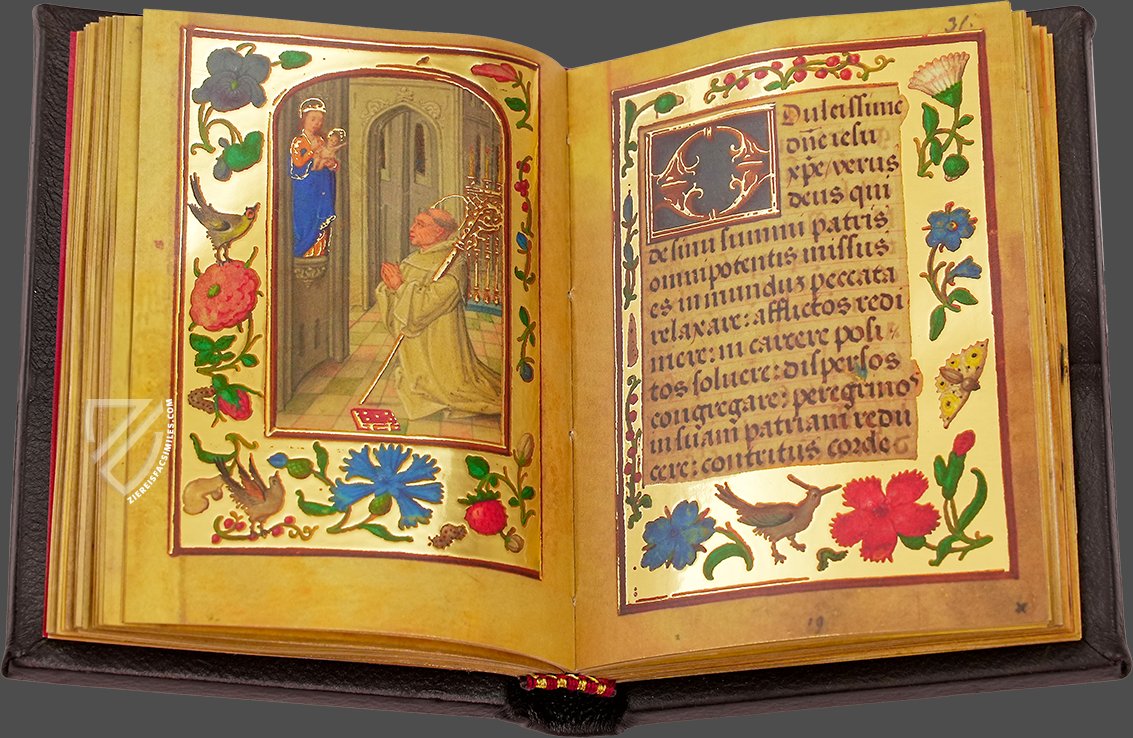 31.
Dulcissime
dn̄e iesu
xp̄e/verus
deus qui
de sinu summi patris
omnipotentis missus
es in munduz peccata
relaxare: afflictos redi
mere: in carcere posi
tos soluere: dispersos
congregare: peregrinos
in suam patriam redu
cere: contritus corde
19
ZIEREISFACSIMILES.COM